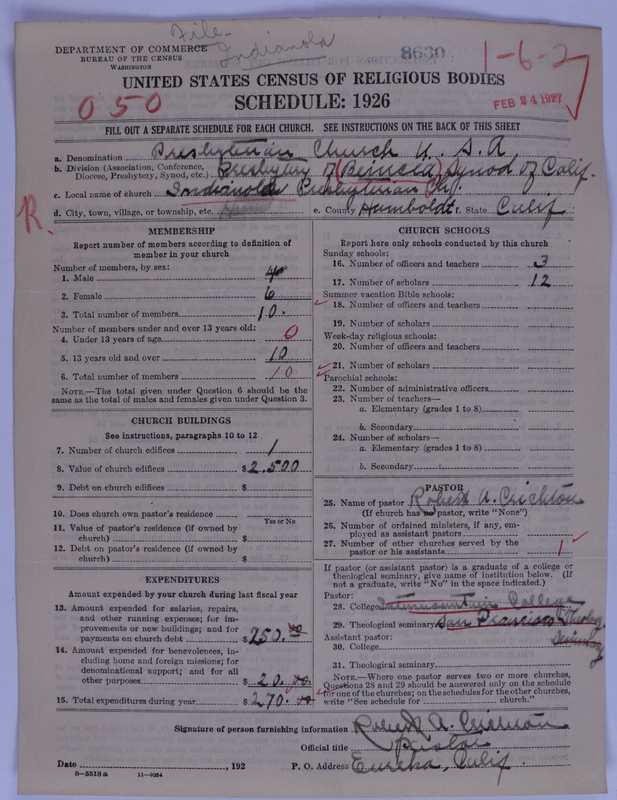 File-
Indianola
DEPARTMENT OF COMMERCE
BUREAU OF THE CENSUS
WASHINGTON
8630
1-6-2
UNITED STATES CENSUS OF RELIGIOUS BODIES
050
SCHEDULE: 1926
FEB 24 1927
FILL OUT A SEPARATE SCHEDULE FOR EACH CHURCH. SEE INSTRUCTIONS ON THE BACK OF THIS SHEET
a. Denomination Presbyterian Church U. S. A
b. Division (Association, Conference, Diocese, Presbytery, Synod, etc.) Presbytery of (Benicia) Synod of Calif.
c. Local name of church Indianola Presbyterian Ch.
R.
d. City, town, village, or township, etc. e. County Humboldt f. State Calif
MEMBERSHIP
Report number of members according to definition of
member in your church
Number of members, by sex:
1. Male 4
2. Female 6
3. Total number of members 10.
Number of members under and over 13 years old:
4. Under 13 years of age 0
5. 13 years old and over 10
6. Total number of members 10
NOTE.—The total given under Question 6 should be the
same as the total of males and females given under Question 3.
CHURCH BUILDINGS
See instructions, paragraphs 10 to 12
7. Number of church edifices 1
8. Value of church edifices $2,500
9. Debt on church edifices $
10. Does church own pastor's residence
Yes or No
11. Value of pastor's residence (if owned by
church) $
12. Debt on pastor's residence (if owned by
church) $
EXPENDITURES
Amount expended by your church during last fiscal year
13. Amount expended for salaries, repairs,
and other running expenses; for im-
provements or new buildings; and for
payments on church debt $250.00
14. Amount expended for benevolences, in-
cluding home and foreign missions; for
denominational support; and for all
other purposes $20.00
15. Total expenditures during year $270.00
CHURCH SCHOOLS
Report here only schools conducted by this church
Sunday schools:
16. Number of officers and teachers 3
17. Number of scholars 12
Summer vacation Bible schools:
18. Number of officers and teachers
19. Number of scholars
Week-day religious schools:
20. Number of officers and teachers
21. Number of scholars
Parochial schools:
22. Number of administrative officers
23. Number of teachers—
a. Elementary (grades 1 to 8)
b. Secondary
24. Number of scholars—
a. Elementary (grades 1 to 8)
b. Secondary
PASTOR
25. Name of pastor Robert A. Crichton
(If church has no pastor, write "None")
26. Number of ordained ministers, if any, em-
ployed as assistant pastors
27. Number of other churches served by the
pastor or his assistants 1
If pastor (or assistant pastor) is a graduate of a college or
theological seminary, give name of institution below. (If
not a graduate, write "No" in the space indicated.)
Pastor:
28. College Intermountain College
29. Theological seminary San Francisco Theolog. Seminary
Assistant pastor:
30. College
31. Theological seminary
NOTE.—Where one pastor serves two or more churches,
Questions 28 and 29 should be answered only on the schedule
for one of the churches; on the schedules for the other churches,
write "See schedule for church."
Signature of person furnishing information Robert A. Crichton
Official title Pastor
Date , 192 P. O. Address Eureka, Calif.
8-5518a 11-9054